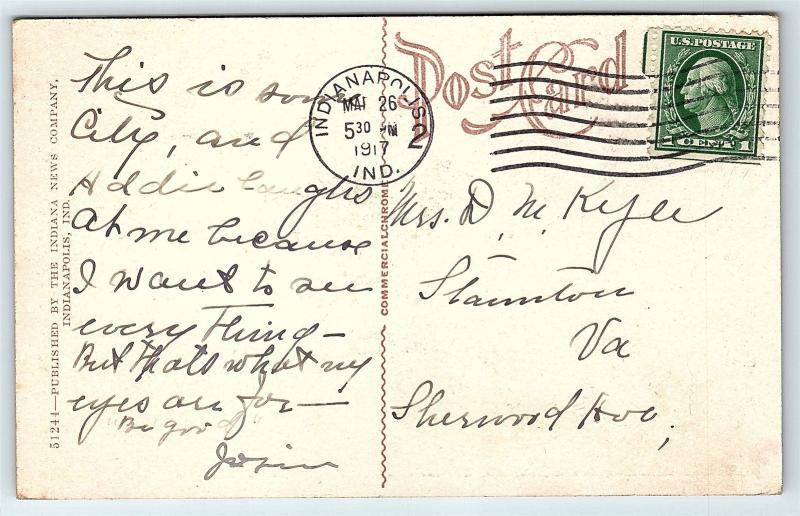 This is some
City, and
Addie laughs
at me because
I want to see
every thing—
But thats what my
eyes are for—
"Be good"
51244—PUBLISHED BY THE INDIANA NEWS COMPANY,
INDIANAPOLIS, IND.
COMMERCIALCHROME
Post Card
INDIANAPOLIS
MAY 26
530 PM
1917
IND.
2
U.S. POSTAGE
1 CENT 1
Mrs. D. M. Kyle
Staunton
Va
Sherwood Ave,